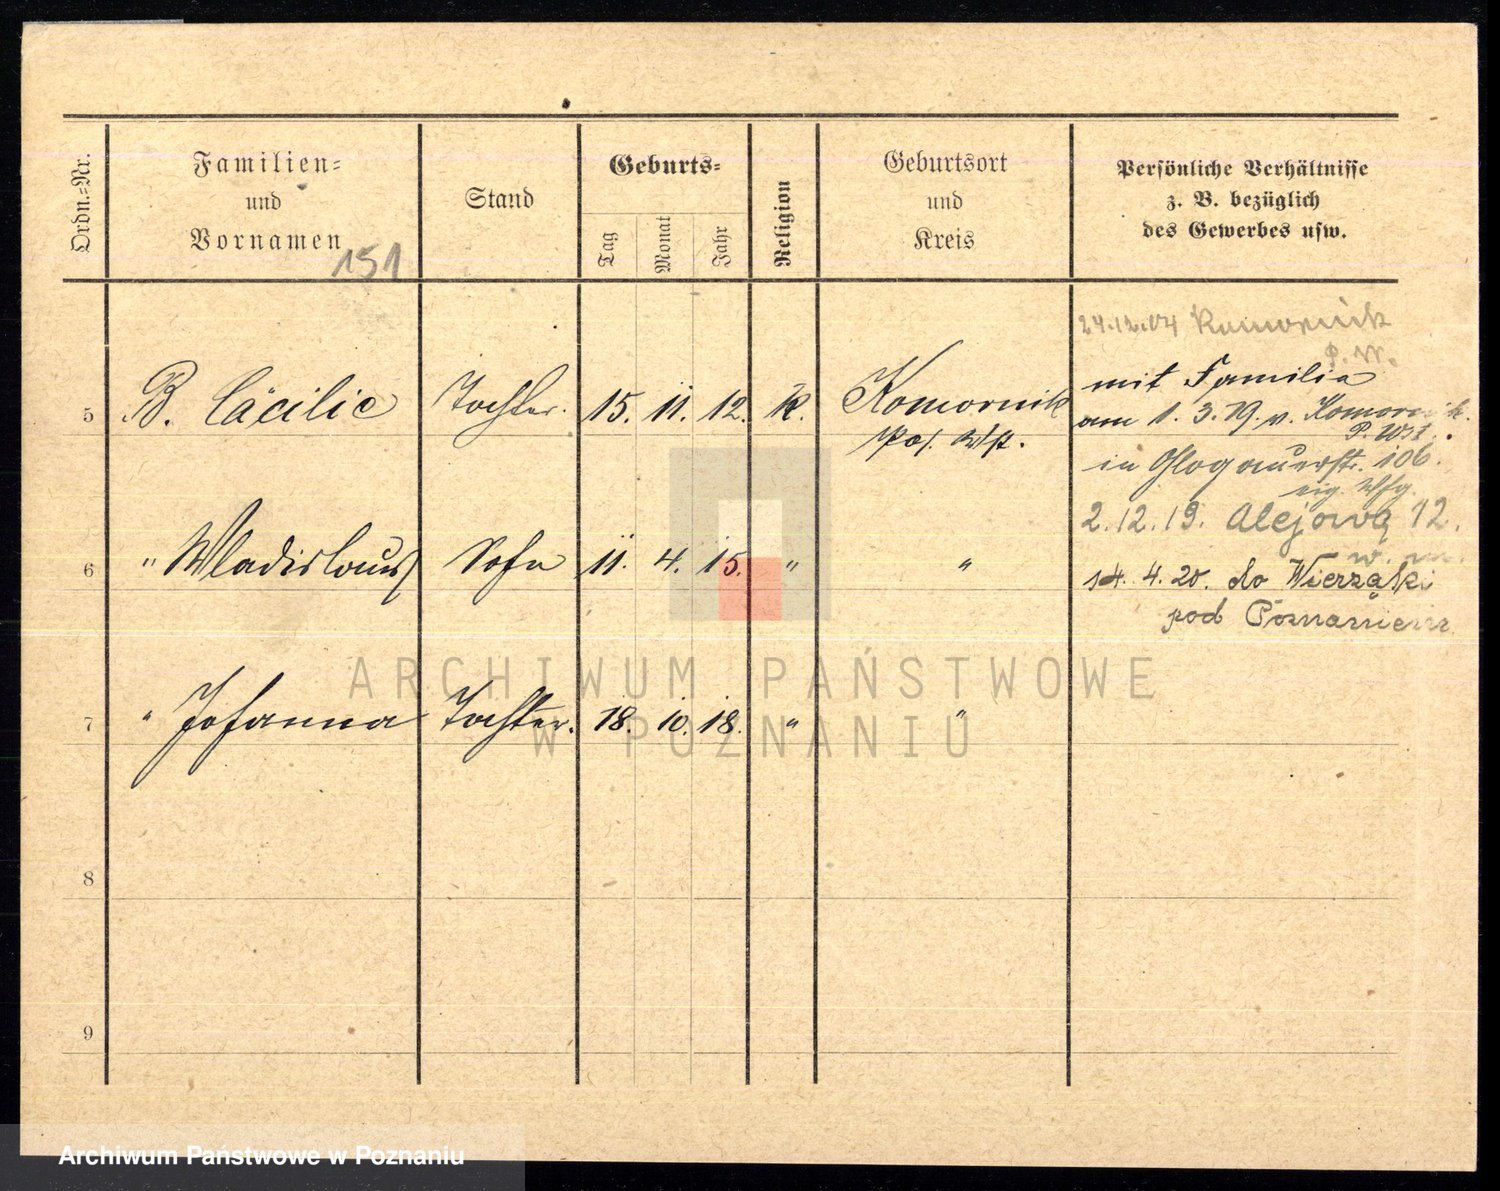 Ordn.=Nr.
Familien=
und
Vornamen
Stand
Geburts=
Tag
Monat
Jahr
Religion
Geburtsort
und
Kreis
Persönliche Verhältnisse
z. B. bezüglich
des Gewerbes usw.
151
24.12.04 Komornik
P. W.
5 B. Cäcilie Tochter. 15. 11. 12. K. Komornik
Pos. Wst.
mit Familie
am 1. 3. 19. v. Komornik.
P. Wst.
in Glogauerstr. 106.
eig. Whg.
2.12.19. Alejowa 12.
w. m.
6 " Wladislaus Sohn 11. 4. 15. " "
14. 4. 20. do Wierząłki
pod Poznaniem
7 " Johanna Tochter. 18. 10. 18. " "
8
9
ARCHIWUM PAŃSTWOWE
W POZNANIU
Archiwum Państwowe w Poznaniu